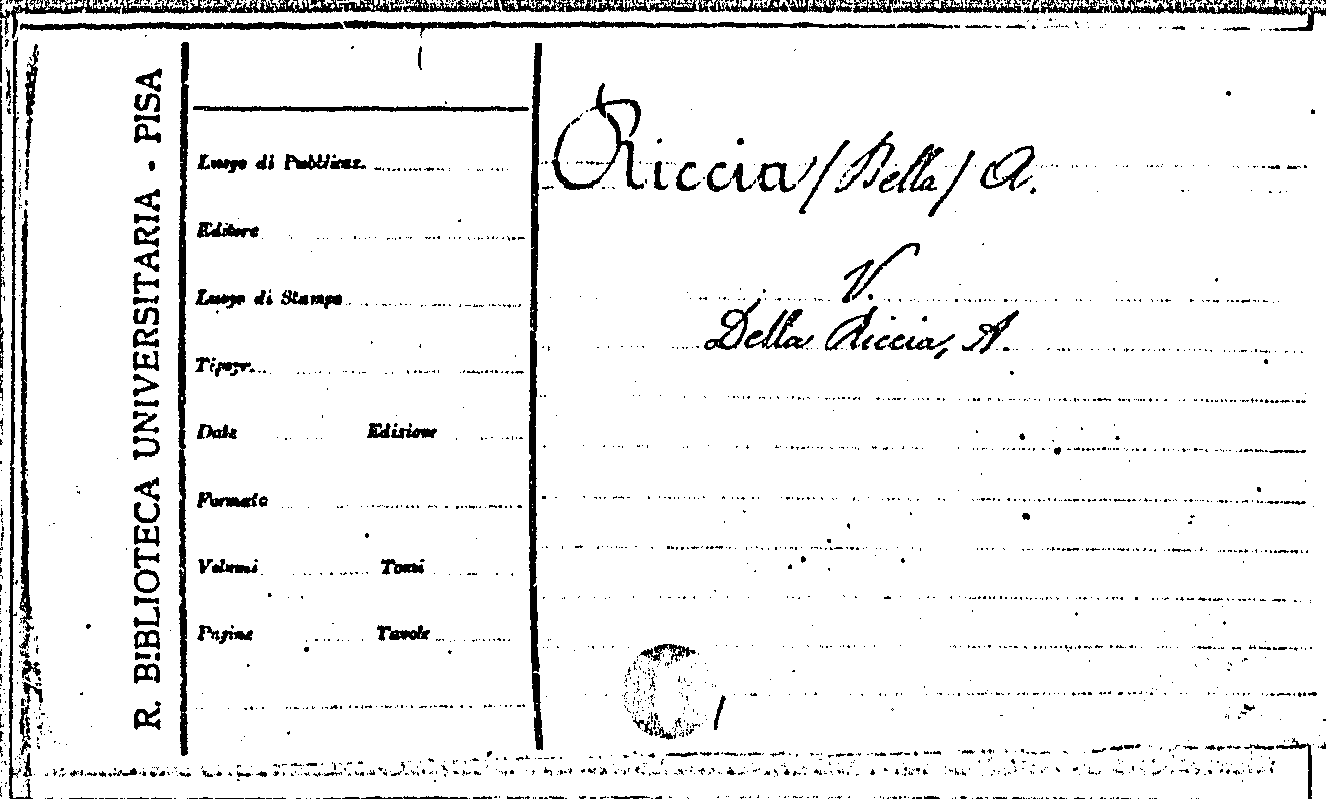 R. BIBLIOTECA UNIVERSITARIA - PISA
Luogo di Pubblicaz.
Editore
Luogo di Stampa
Tipogr.
Data Edizione
Formato
Volumi Tomi
Pagine Tavole
Riccia / Della / A.
V.
Della Riccia, A.